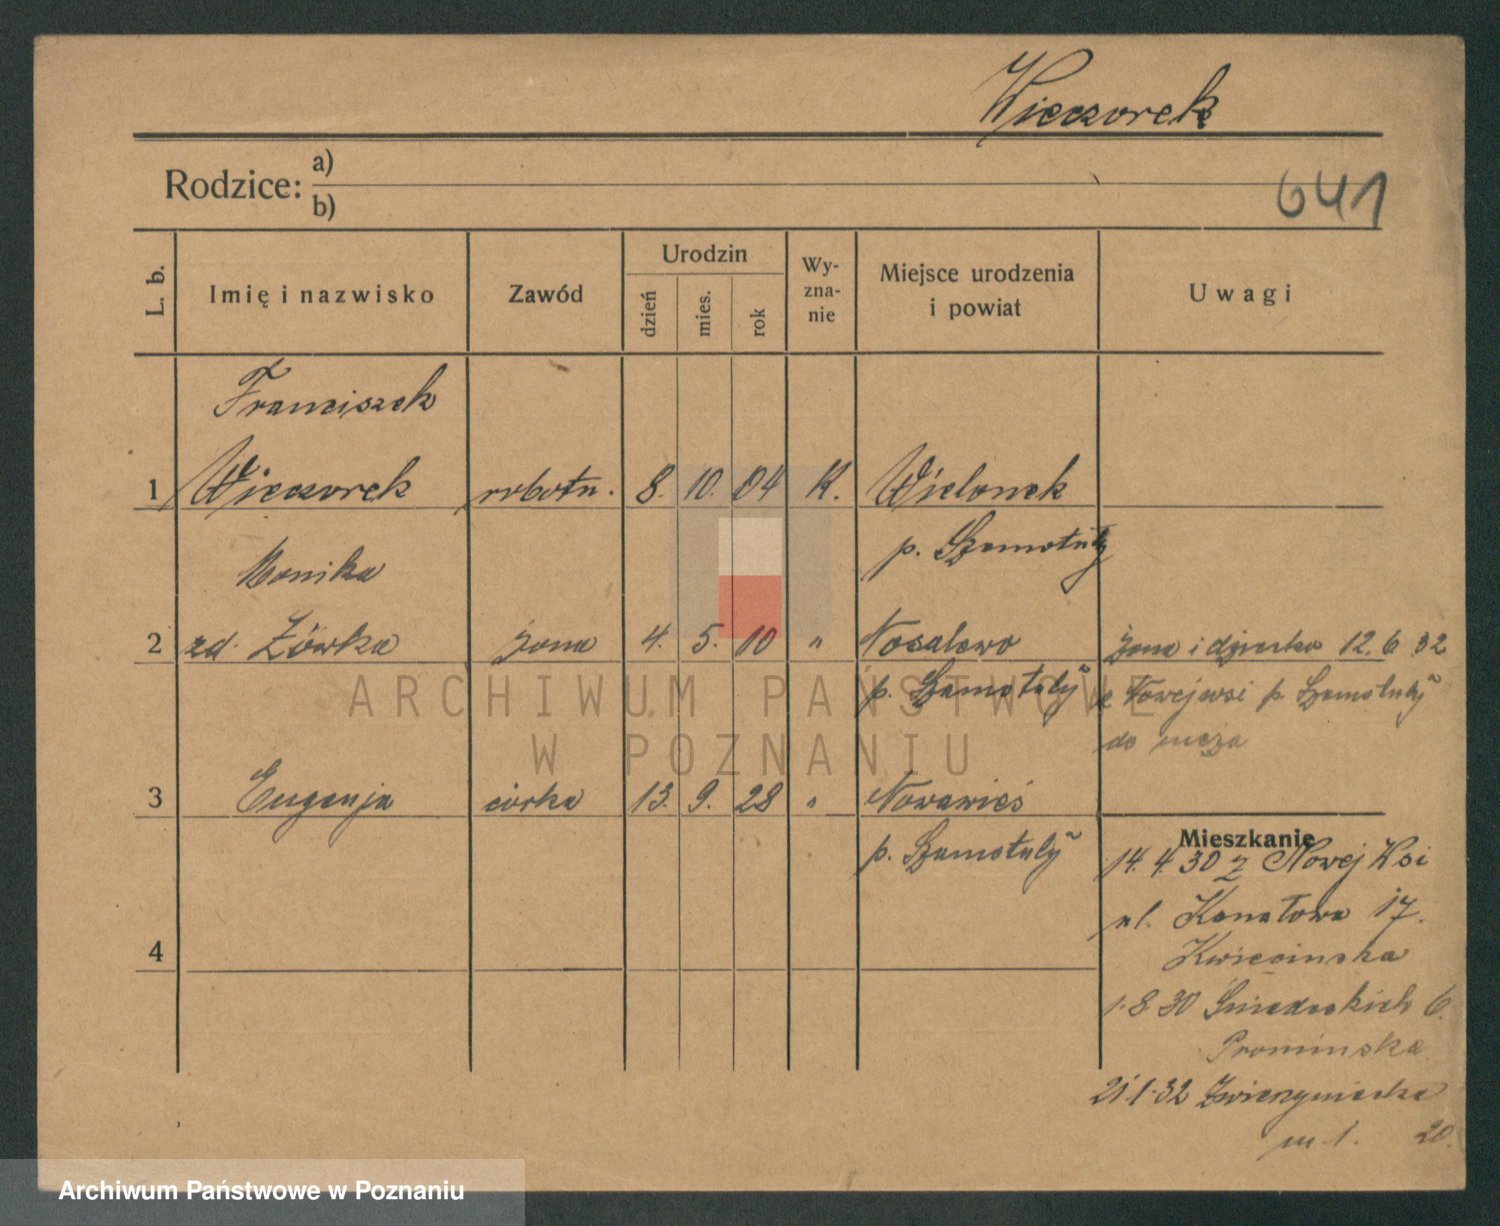 Wieczorek
Rodzice: a)
b)
641
L. b.
Imię i nazwisko
Zawód
Urodzin
dzień
mies.
rok
Wy-
zna-
nie
Miejsce urodzenia
i powiat
Uwagi
Franciszek
1 Wieczorek robotn. 8. 10. 04 K. Wielonek
p. Szamotuły
Monika
2 zd. Żówka żona 4. 5. 10 " Nosalewo
p. Szamotuły
żona i dziecko 12.6 32
z Nowejwsi p. Szamotuły
do męża
3 Eugenja córka 13. 9. 28 " Nowawieś
p. Szamotuły
4
Mieszkanie
14. 4 30 z Nowej Wsi
ul. Kanałowa 17.
Kwiecinska
1.8.30 Śniadeckich 6.
Prominska
21.1.32 Zwierzyniecka
m 1. 20.
ARCHIWUM PAŃSTWOWE
W POZNANIU
Archiwum Państwowe w Poznaniu